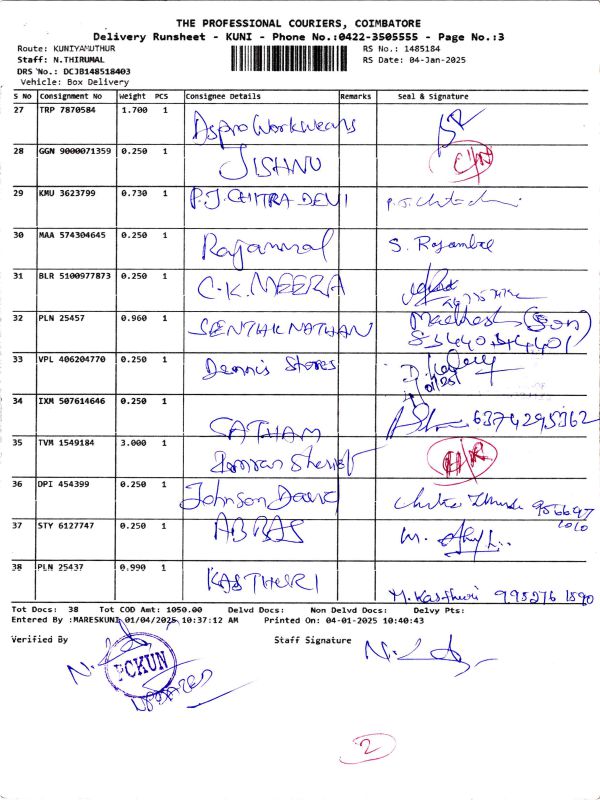 THE PROFESSIONAL COURIERS, COIMBATORE
Delivery Runsheet - KUNI - Phone No.:0422-3505555 - Page No.:3
Route: KUNIYAMUTHUR RS No.: 1485184
Staff: N.THIRUMAL RS Date: 04-Jan-2025
DRS No.: DCJB148518403
Vehicle: Box Delivery
S No Consignment No Weight PCS Consignee Details Remarks Seal & Signature
27 TRP 7870584 1.700 1 Aspro Workwears
28 GGN 9000071359 0.250 1 JISHNU
29 KMU 3623799 0.730 1 P.J.CHITRA DEVI
30 MAA 574304645 0.250 1 Rajammal S. Rajambal
31 BLR 5100977873 0.250 1 C.K.MEERA
32 PLN 25457 0.960 1 SENTHIL NATHAN (Son)
33 VPL 406204770 0.250 1 Dennis Stores
34 IXM 507614646 0.250 1 SATHAM 6374295362
35 TVM 1549184 3.000 1
36 DPI 454399 0.250 1 Johnson David
37 STY 6127747 0.250 1 ABBAS
38 PLN 25437 0.990 1 KASTHURI M. Kasthuri
Tot Docs: 38 Tot COD Amt: 1050.00 Delvd Docs: Non Delvd Docs: Delvy Pts:
Entered By :MARESKUNI 01/04/2025 10:37:12 AM Printed On: 04-01-2025 10:40:43
Verified By Staff Signature
PCKUN
UPDATED
2